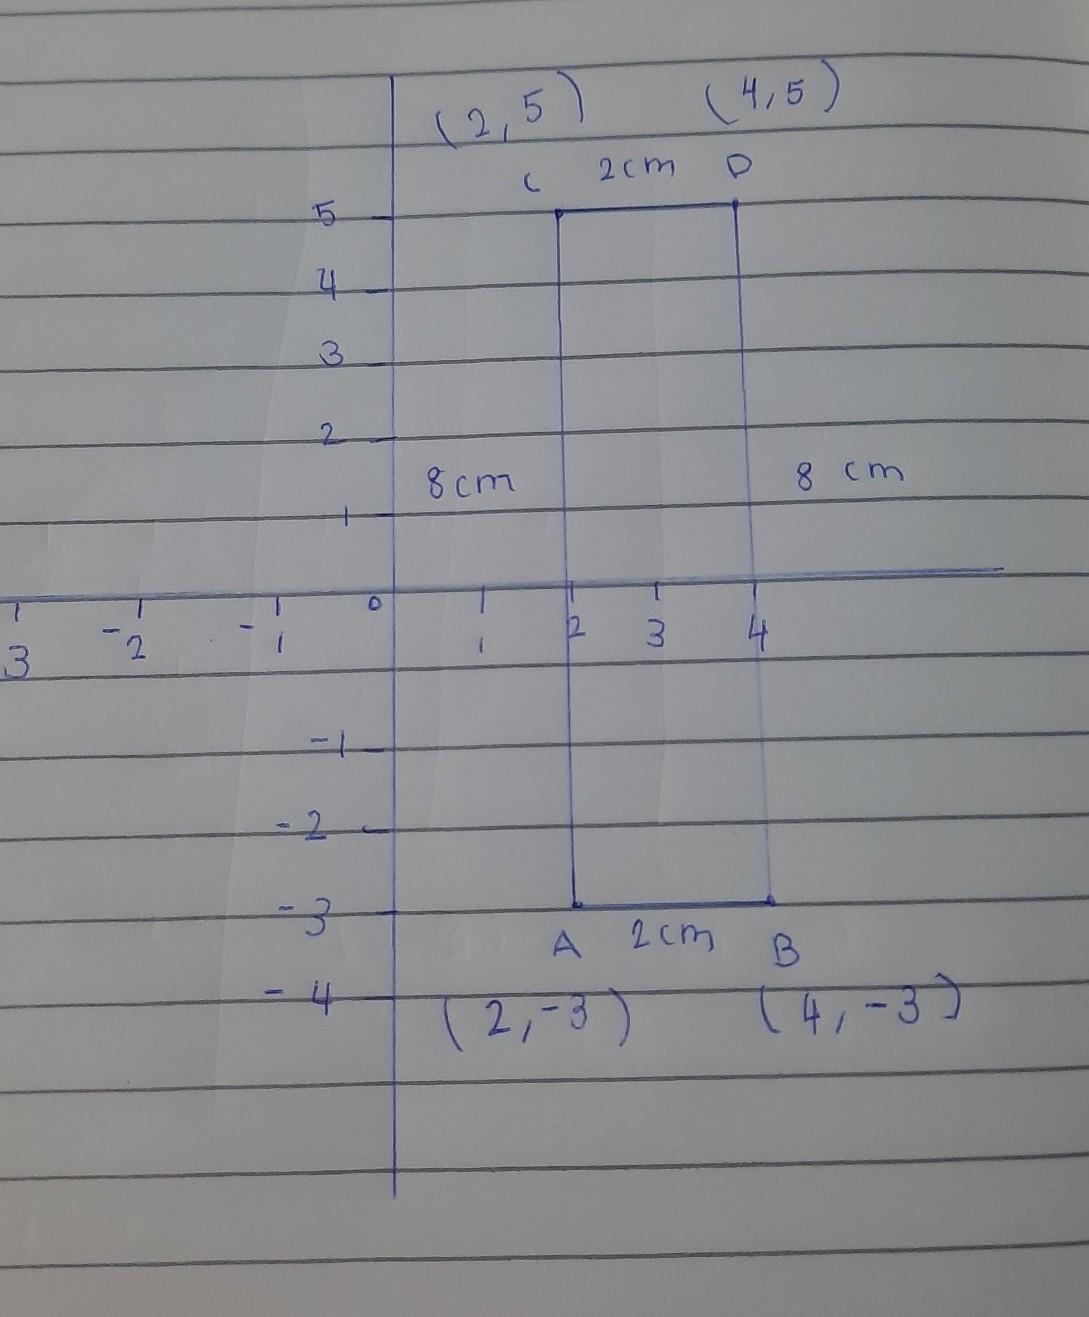 (2,5) (4,5)
C 2cm D
5
4
3
2
8cm 8 cm
1
0
3 -2 -1 1 2 3 4
-1
-2
-3
A 2cm B
-4
(2,-3) (4,-3)